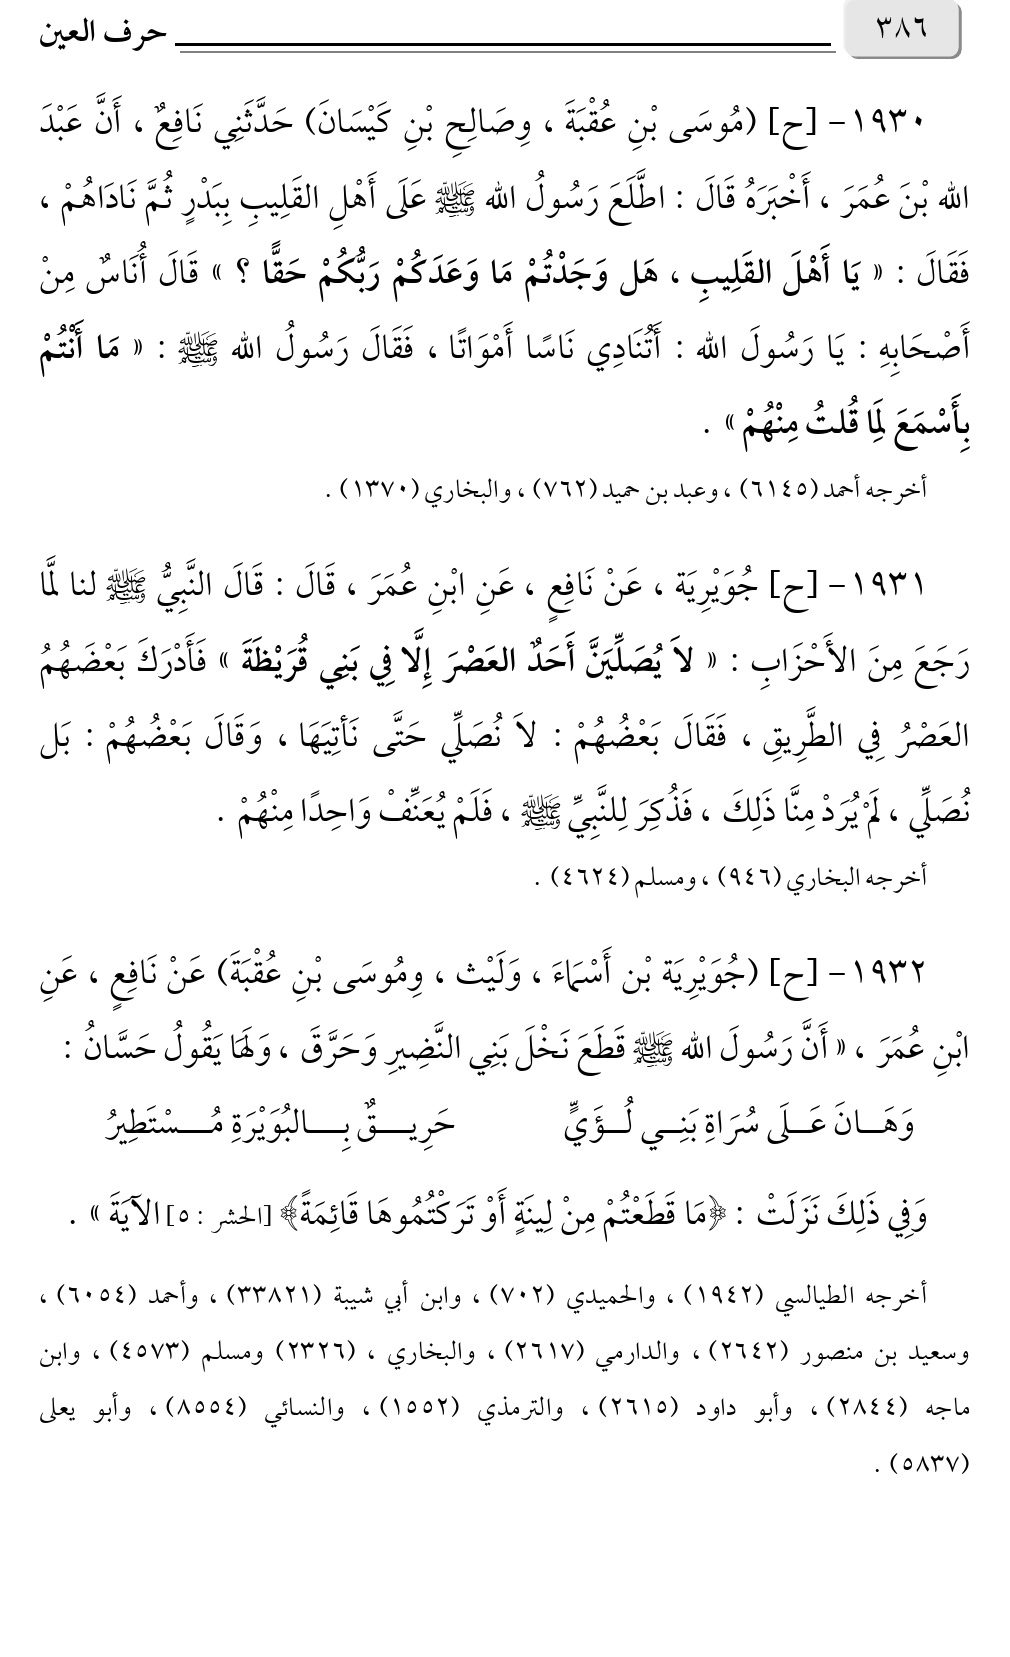 ٣٨٦
حرف العين
١٩٣٠- [ح] (مُوسَى بْنِ عُقْبَةَ ، وِصَالِحِ بْنِ كَيْسَانَ) حَدَّثَنِي نَافِعٌ ، أَنَّ عَبْدَ
الله بْنَ عُمَرَ ، أَخْبَرَهُ قَالَ : اطَّلَعَ رَسُولُ الله ﷺ عَلَى أَهْلِ القَلِيبِ بِبَدْرٍ ثُمَّ نَادَاهُمْ ،
فَقَالَ : « يَا أَهْلَ القَلِيبِ ، هَل وَجَدْتُمْ مَا وَعَدَكُمْ رَبُّكُمْ حَقًّا ؟ » قَالَ أُنَاسٌ مِنْ
أَصْحَابِهِ : يَا رَسُولَ الله : أَتُنَادِي نَاسًا أَمْوَاتًا ، فَقَالَ رَسُولُ الله ﷺ : « مَا أَنْتُمْ
بِأَسْمَعَ لِمَا قُلتُ مِنْهُمْ » .
أخرجه أحمد (٦١٤٥) ، وعبد بن حميد (٧٦٢) ، والبخاري (١٣٧٠) .
١٩٣١- [ح] جُوَيْرِيَة ، عَنْ نَافِعٍ ، عَنِ ابْنِ عُمَرَ ، قَالَ : قَالَ النَّبِيُّ ﷺ لنا لمَّا
رَجَعَ مِنَ الأَحْزَابِ : « لاَ يُصَلِّيَنَّ أَحَدٌ العَصْرَ إِلَّا فِي بَنِي قُرَيْظَةَ » فَأَدْرَكَ بَعْضَهُمُ
العَصْرُ فِي الطَّرِيقِ ، فَقَالَ بَعْضُهُمْ : لاَ نُصَلِّي حَتَّى نَأتِيَهَا ، وَقَالَ بَعْضُهُمْ : بَل
نُصَلِّي ، لَمْ يُرَدْ مِنَّا ذَلِكَ ، فَذُكِرَ لِلنَّبِيِّ ﷺ ، فَلَمْ يُعَنِّفْ وَاحِدًا مِنْهُمْ .
أخرجه البخاري (٩٤٦) ، ومسلم (٤٦٢٤) .
١٩٣٢- [ح] (جُوَيْرِيَة بْن أَسْمَاءَ ، وَلَيْث ، وِمُوسَى بْنِ عُقْبَةَ) عَنْ نَافِعٍ ، عَنِ
ابْنِ عُمَرَ ، « أَنَّ رَسُولَ الله ﷺ قَطَعَ نَخْلَ بَنِي النَّضِيرِ وَحَرَّقَ ، وَلَهَا يَقُولُ حَسَّانُ :
وَهَـانَ عَـلَى سُرَاةِ بَنِـي لُـؤَيٍّ حَرِيـقٌ بِـالبُوَيْرَةِ مُـسْتَطِيرُ
وَفِي ذَلِكَ نَزَلَتْ : ﴿مَا قَطَعْتُمْ مِنْ لِينَةٍ أَوْ تَرَكْتُمُوهَا قَائِمَةً﴾ [الحشر : ٥] الآيَةَ » .
أخرجه الطيالسي (١٩٤٢) ، والحميدي (٧٠٢) ، وابن أبي شيبة (٣٣٨٢١) ، وأحمد (٦٠٥٤) ،
وسعيد بن منصور (٢٦٤٢) ، والدارمي (٢٦١٧) ، والبخاري ، (٢٣٢٦) ومسلم (٤٥٧٣) ، وابن
ماجه (٢٨٤٤) ، وأبو داود (٢٦١٥) ، والترمذي (١٥٥٢) ، والنسائي (٨٥٥٤) ، وأبو يعلى
(٥٨٣٧) .